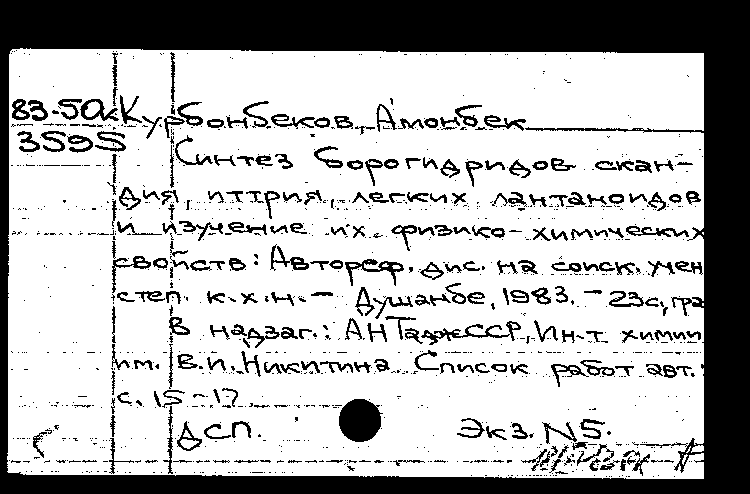 83-50к Курбонбеков, Амонбек
3595
Синтез борогидридов скан-
дия, иттрия, легких лантаноидов
и изучение их физико-химических
свойств: Автореф. дис. на соиск. учен
степ. к.х.н. – Душанбе, 1983. – 23с, гра
В надзаг.: АН ТаджССР, Ин-т химии
им. В.И. Никитина. Список работ авт.:
с. 15-17.
ДСП. Экз. N5.